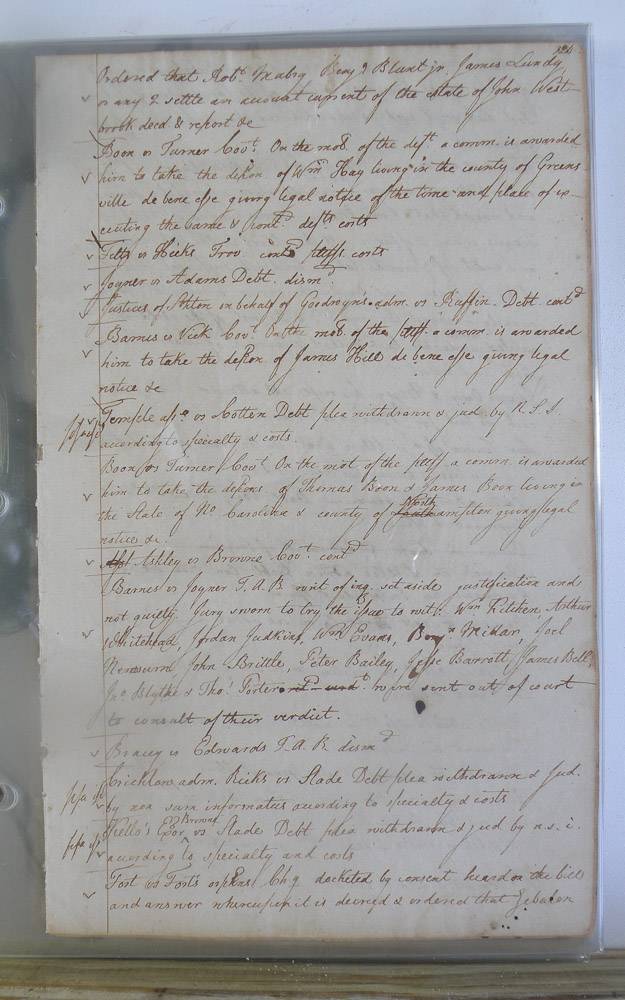 124
Ordered that Robt. Mabry Benja Blunt jr. James Lundy
or any 2 settle an account current of the estate of John West
brook decd & report &c
Boon vs Turner Covt. On the mot. of the deft a comm. is awarded
him to take the depon of Wm Hay living in the county of Greens
ville de bene esse giving legal notice of the time and place of ex
ecuting the same & contd defts costs
Felts vs Hicks Trov contd costs
Joyner vs Adams Debt. dismd
Justices of Sthton on behalf of Goodwyns adm. vs Ruffin Debt contd
Barnes vs Vick Covt On the mot. of the pltff. a comm. is awarded
him to take the depon of James Hill de bene esse giving legal
notice &c
Temple asse vs Cotten Debt plea withdrawn & jud. by N.S.I.
according to specialty & costs
Boon vs Turner Covt. On the mot of the pltff a comm. is awarded
him to take the depons of Thomas Boon & James Boon living in
North
the State of No. Carolina & county of southampton giving legal
notice &c.
Ashley vs Browne Covt. contd
Barnes vs Joyner T.A.B. writ of inq. set aside justification and
not guilty. Jury sworn to try the issue to wit: Wm Kitchen, Arthur
Whitehead, Jordan Judkins, Wm Evans, Benjn Millar, Joel
Newsum John Brittle, Peter Bailey, Jesse Barrott, James Bell,
Jno Blythe & Thos. Porter were sent out of court
to consult of their verdict.
Bracey vs Edwards T.A.B. dismd
Crichlow adm. Ricks vs Slade Debt plea withdrawn & jud.
by non sum informatus according to specialty & costs
Browne
Kello's Exor vs Slade Debt plea withdrawn & jud by n.s.i.
according to specialty and costs
Fort vs Forts orphans Chy docketed by consent heard on the bill
and answer whereupon it is decreed & ordered that Zebulon